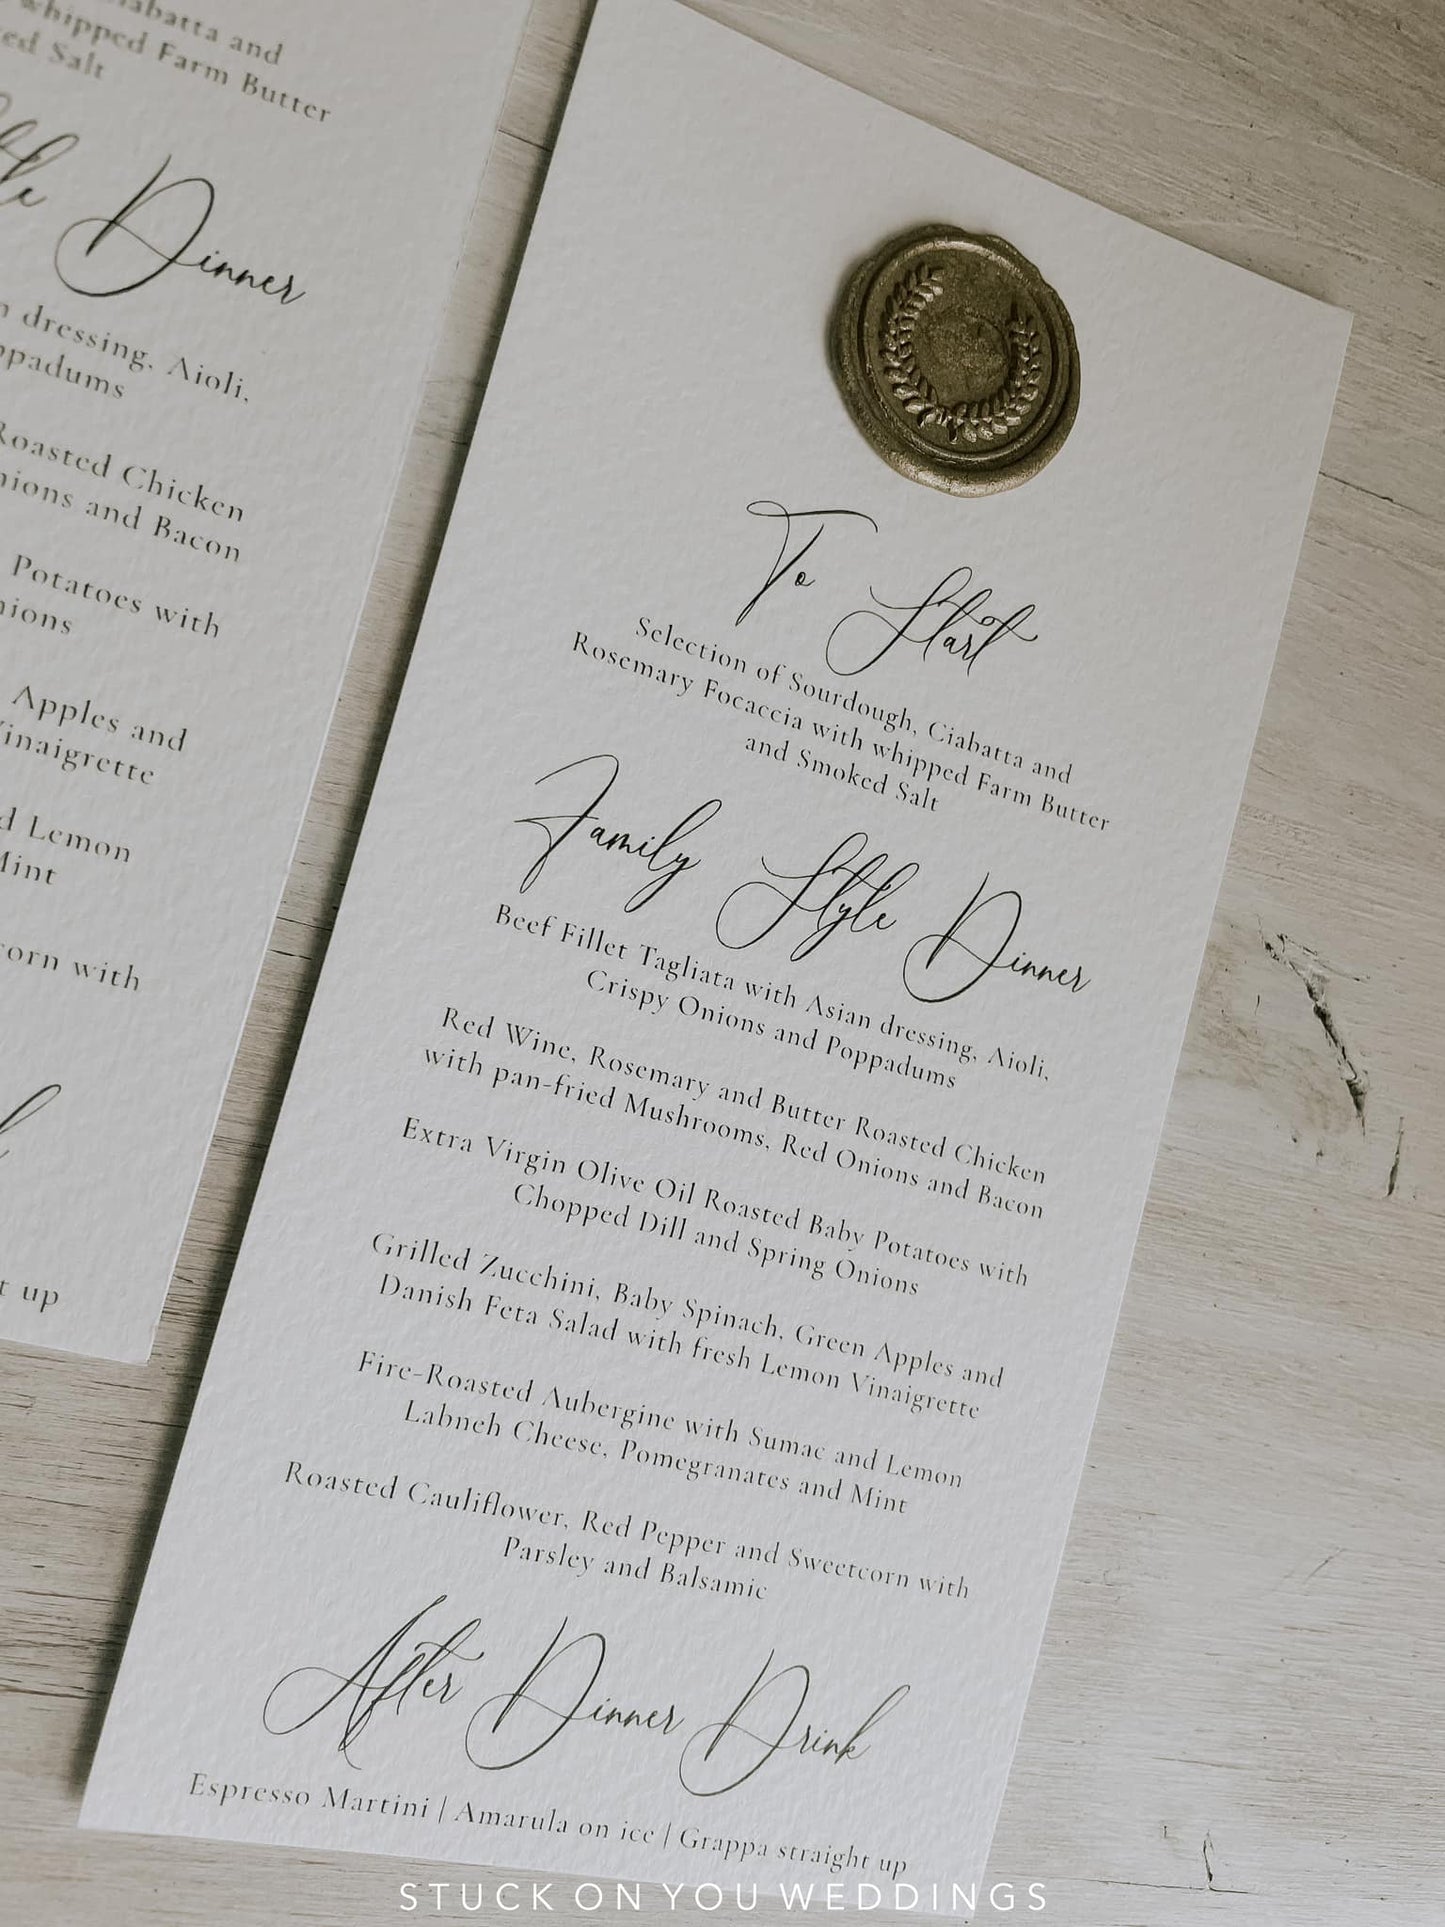 Ciabatta and
whipped Farm Butter
Salt
Dinner
dressing, Aioli,
Roasted Chicken
and Bacon
Potatoes with
Apples and
Vinaigrette
Lemon
Mint
with
up
To Start
Selection of Sourdough, Ciabatta and
Rosemary Focaccia with whipped Farm Butter
and Smoked Salt
Family Style Dinner
Beef Fillet Tagliata with Asian dressing, Aioli,
Crispy Onions and Poppadums
Red Wine, Rosemary and Butter Roasted Chicken
with pan-fried Mushrooms, Red Onions and Bacon
Extra Virgin Olive Oil Roasted Baby Potatoes with
Chopped Dill and Spring Onions
Grilled Zucchini, Baby Spinach, Green Apples and
Danish Feta Salad with fresh Lemon Vinaigrette
Fire-Roasted Aubergine with Sumac and Lemon
Labneh Cheese, Pomegranates and Mint
Roasted Cauliflower, Red Pepper and Sweetcorn with
Parsley and Balsamic
After Dinner Drink
Espresso Martini | Amarula on ice | Grappa straight up
STUCK ON YOU WEDDINGS